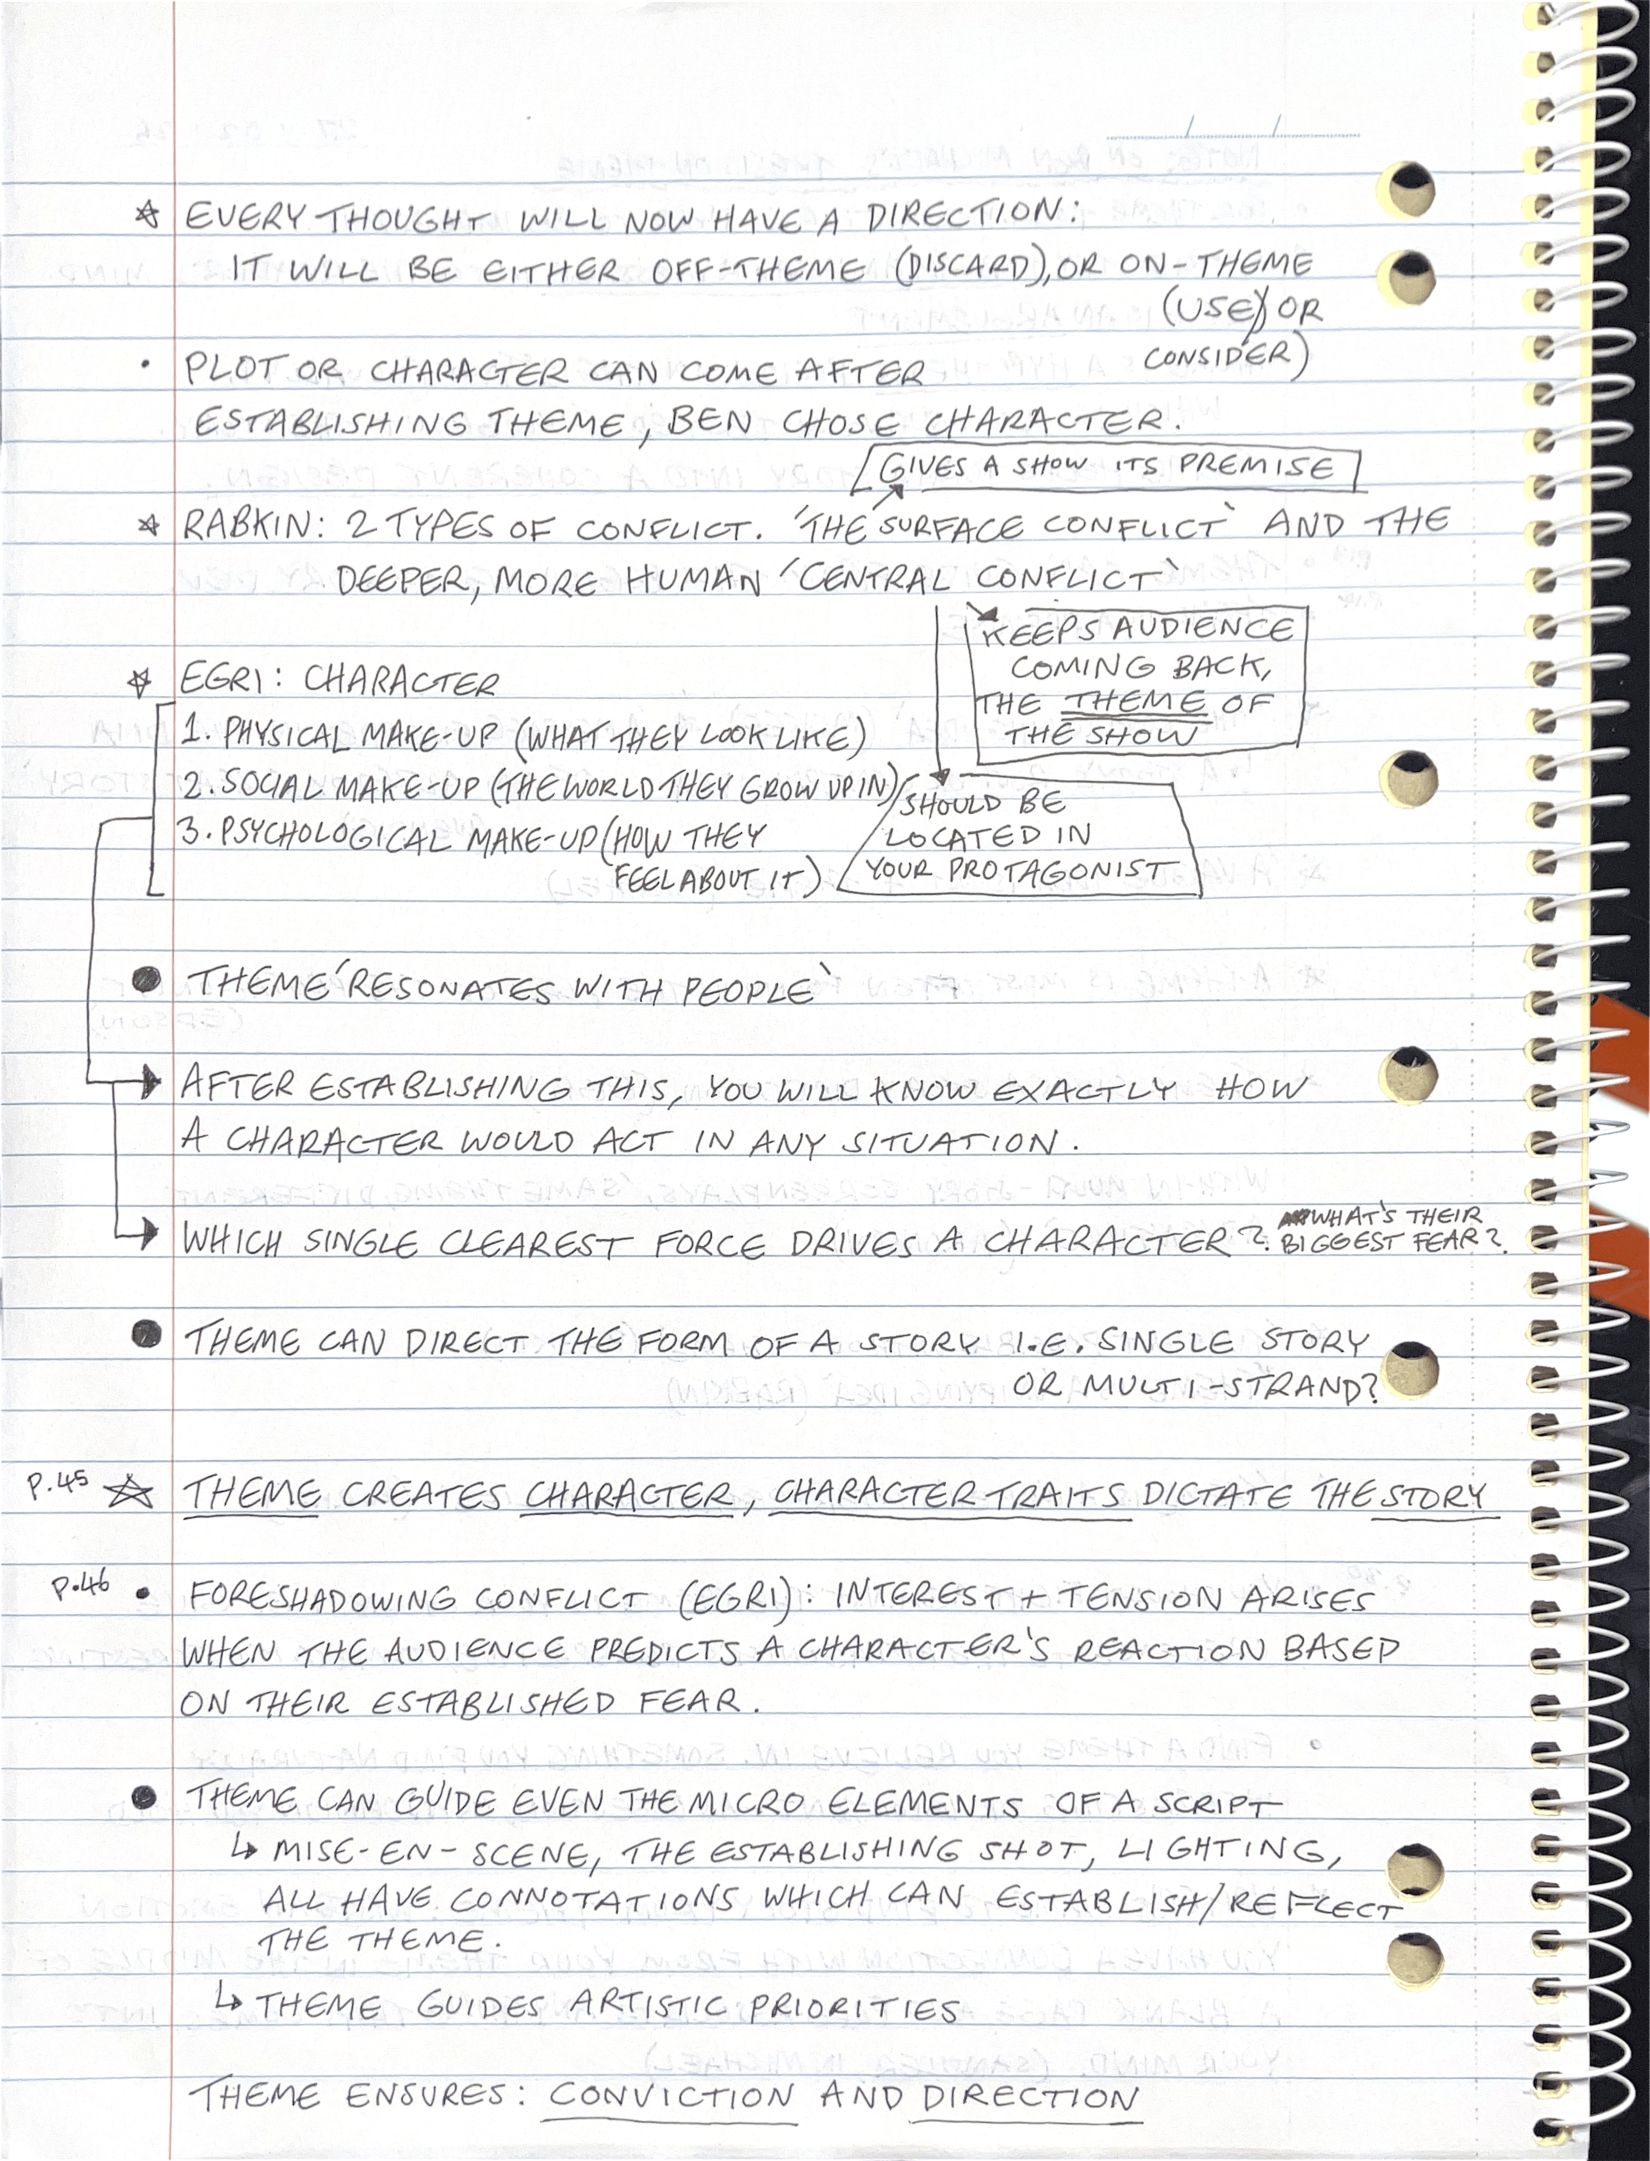 ☆ EVERY THOUGHT WILL NOW HAVE A DIRECTION:
IT WILL BE EITHER OFF-THEME (DISCARD), OR ON-THEME
(USE) OR
CONSIDER)
• PLOT OR CHARACTER CAN COME AFTER
ESTABLISHING THEME, BEN CHOSE CHARACTER.
GIVES A SHOW ITS PREMISE
☆ RABKIN: 2 TYPES OF CONFLICT. 'THE SURFACE CONFLICT' AND THE
DEEPER, MORE HUMAN 'CENTRAL CONFLICT'
KEEPS AUDIENCE
COMING BACK,
THE THEME OF
THE SHOW
☆ EGRI: CHARACTER
1. PHYSICAL MAKE-UP (WHAT THEY LOOK LIKE)
2. SOCIAL MAKE-UP (THE WORLD THEY GROW UP IN)
3. PSYCHOLOGICAL MAKE-UP (HOW THEY
FEEL ABOUT IT)
SHOULD BE
LOCATED IN
YOUR PROTAGONIST
● THEME 'RESONATES WITH PEOPLE'
→ AFTER ESTABLISHING THIS, YOU WILL KNOW EXACTLY HOW
A CHARACTER WOULD ACT IN ANY SITUATION.
→ WHICH SINGLE CLEAREST FORCE DRIVES A CHARACTER? WHAT'S THEIR
BIGGEST FEAR?
● THEME CAN DIRECT THE FORM OF A STORY I.E. SINGLE STORY
OR MULTI-STRAND?
P.45 ☆ THEME CREATES CHARACTER, CHARACTER TRAITS DICTATE THE STORY
P.46 • FORESHADOWING CONFLICT (EGRI): INTEREST + TENSION ARISES
WHEN THE AUDIENCE PREDICTS A CHARACTER'S REACTION BASED
ON THEIR ESTABLISHED FEAR.
● THEME CAN GUIDE EVEN THE MICRO ELEMENTS OF A SCRIPT
↳ MISE-EN-SCENE, THE ESTABLISHING SHOT, LIGHTING,
ALL HAVE CONNOTATIONS WHICH CAN ESTABLISH/REFLECT
THE THEME.
↳ THEME GUIDES ARTISTIC PRIORITIES
THEME ENSURES: CONVICTION AND DIRECTION